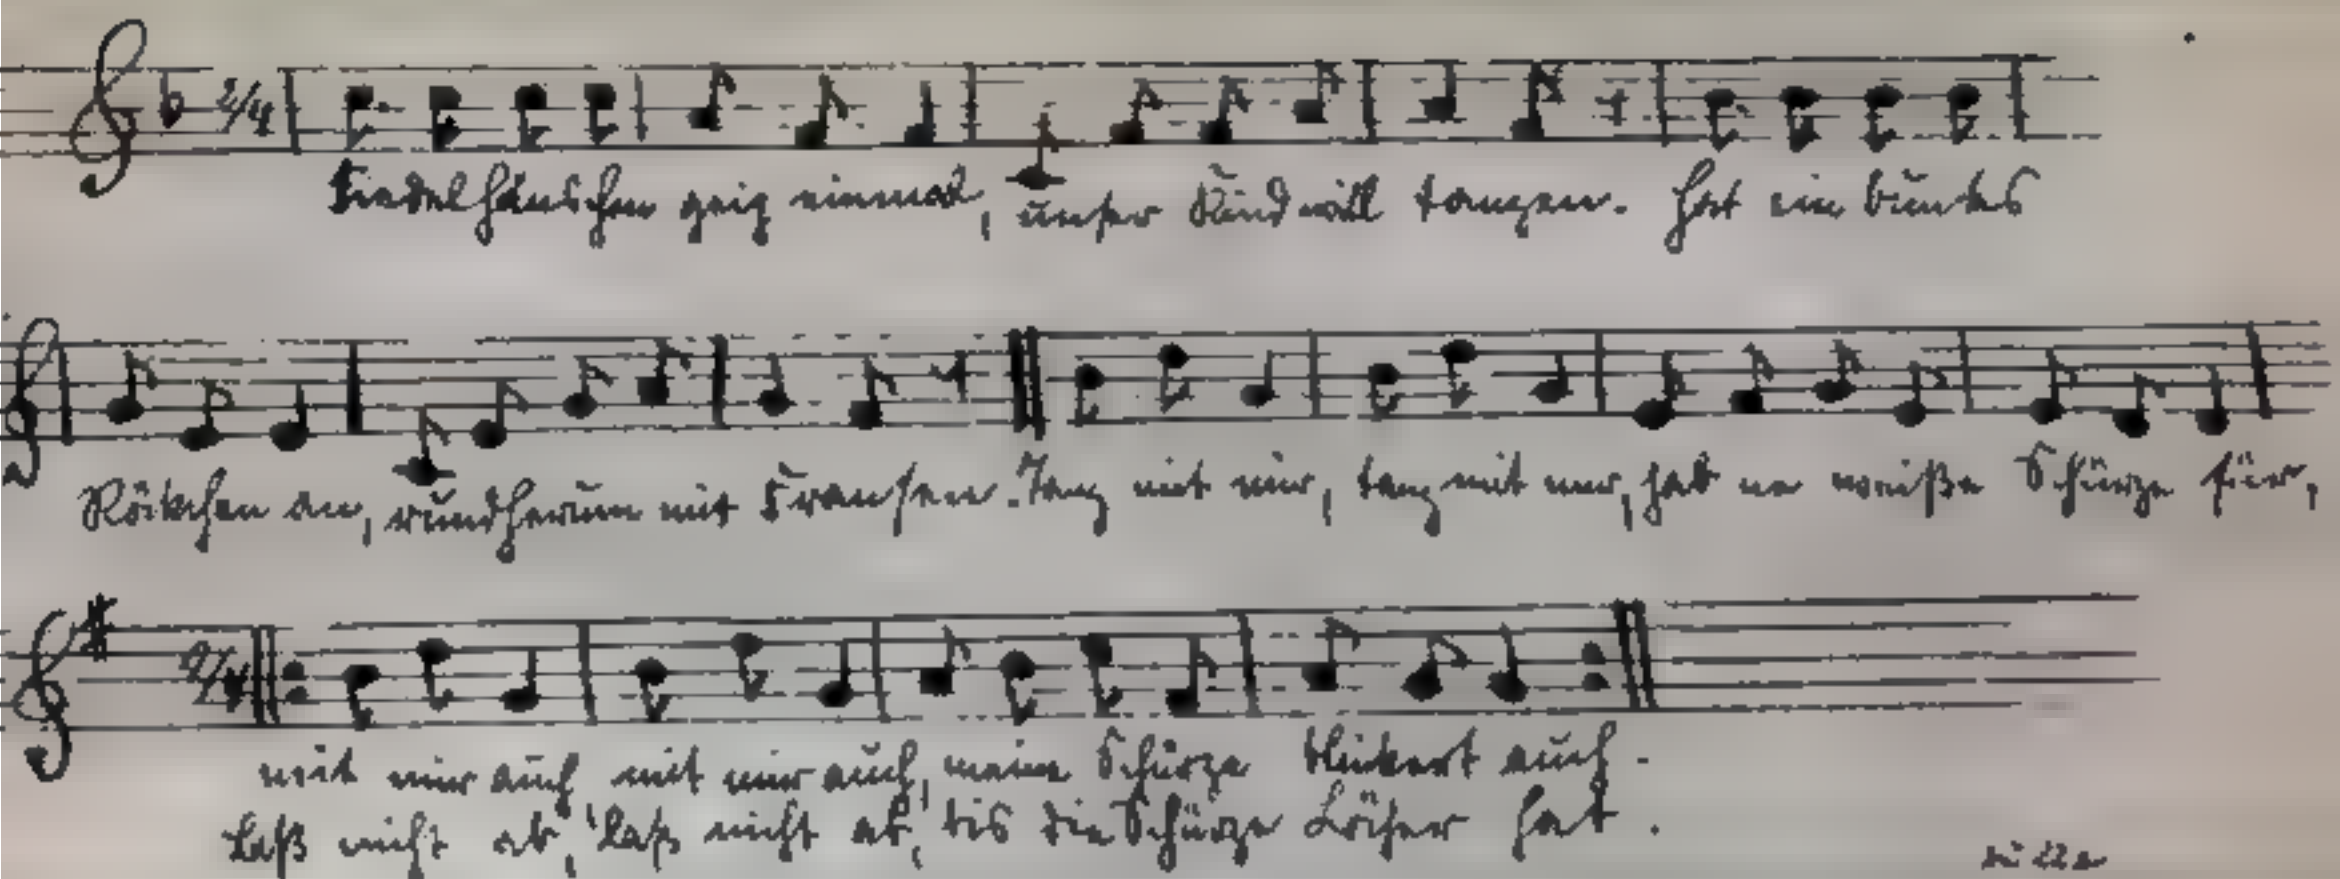 2/4
Fiedelhänschen geig einmal, unser Kind will tanzen. Hat ein buntes
Röckchen an, rundherum mit Fransen. Tanz mit mir, tanz mit mir, hab ne weiße Schürze für,
2/4
mit mir auch mit mir auch, meine Schürze kleckert auch.
Laß nicht ab, laß nicht ab, bis die Schürze Löcher hat.